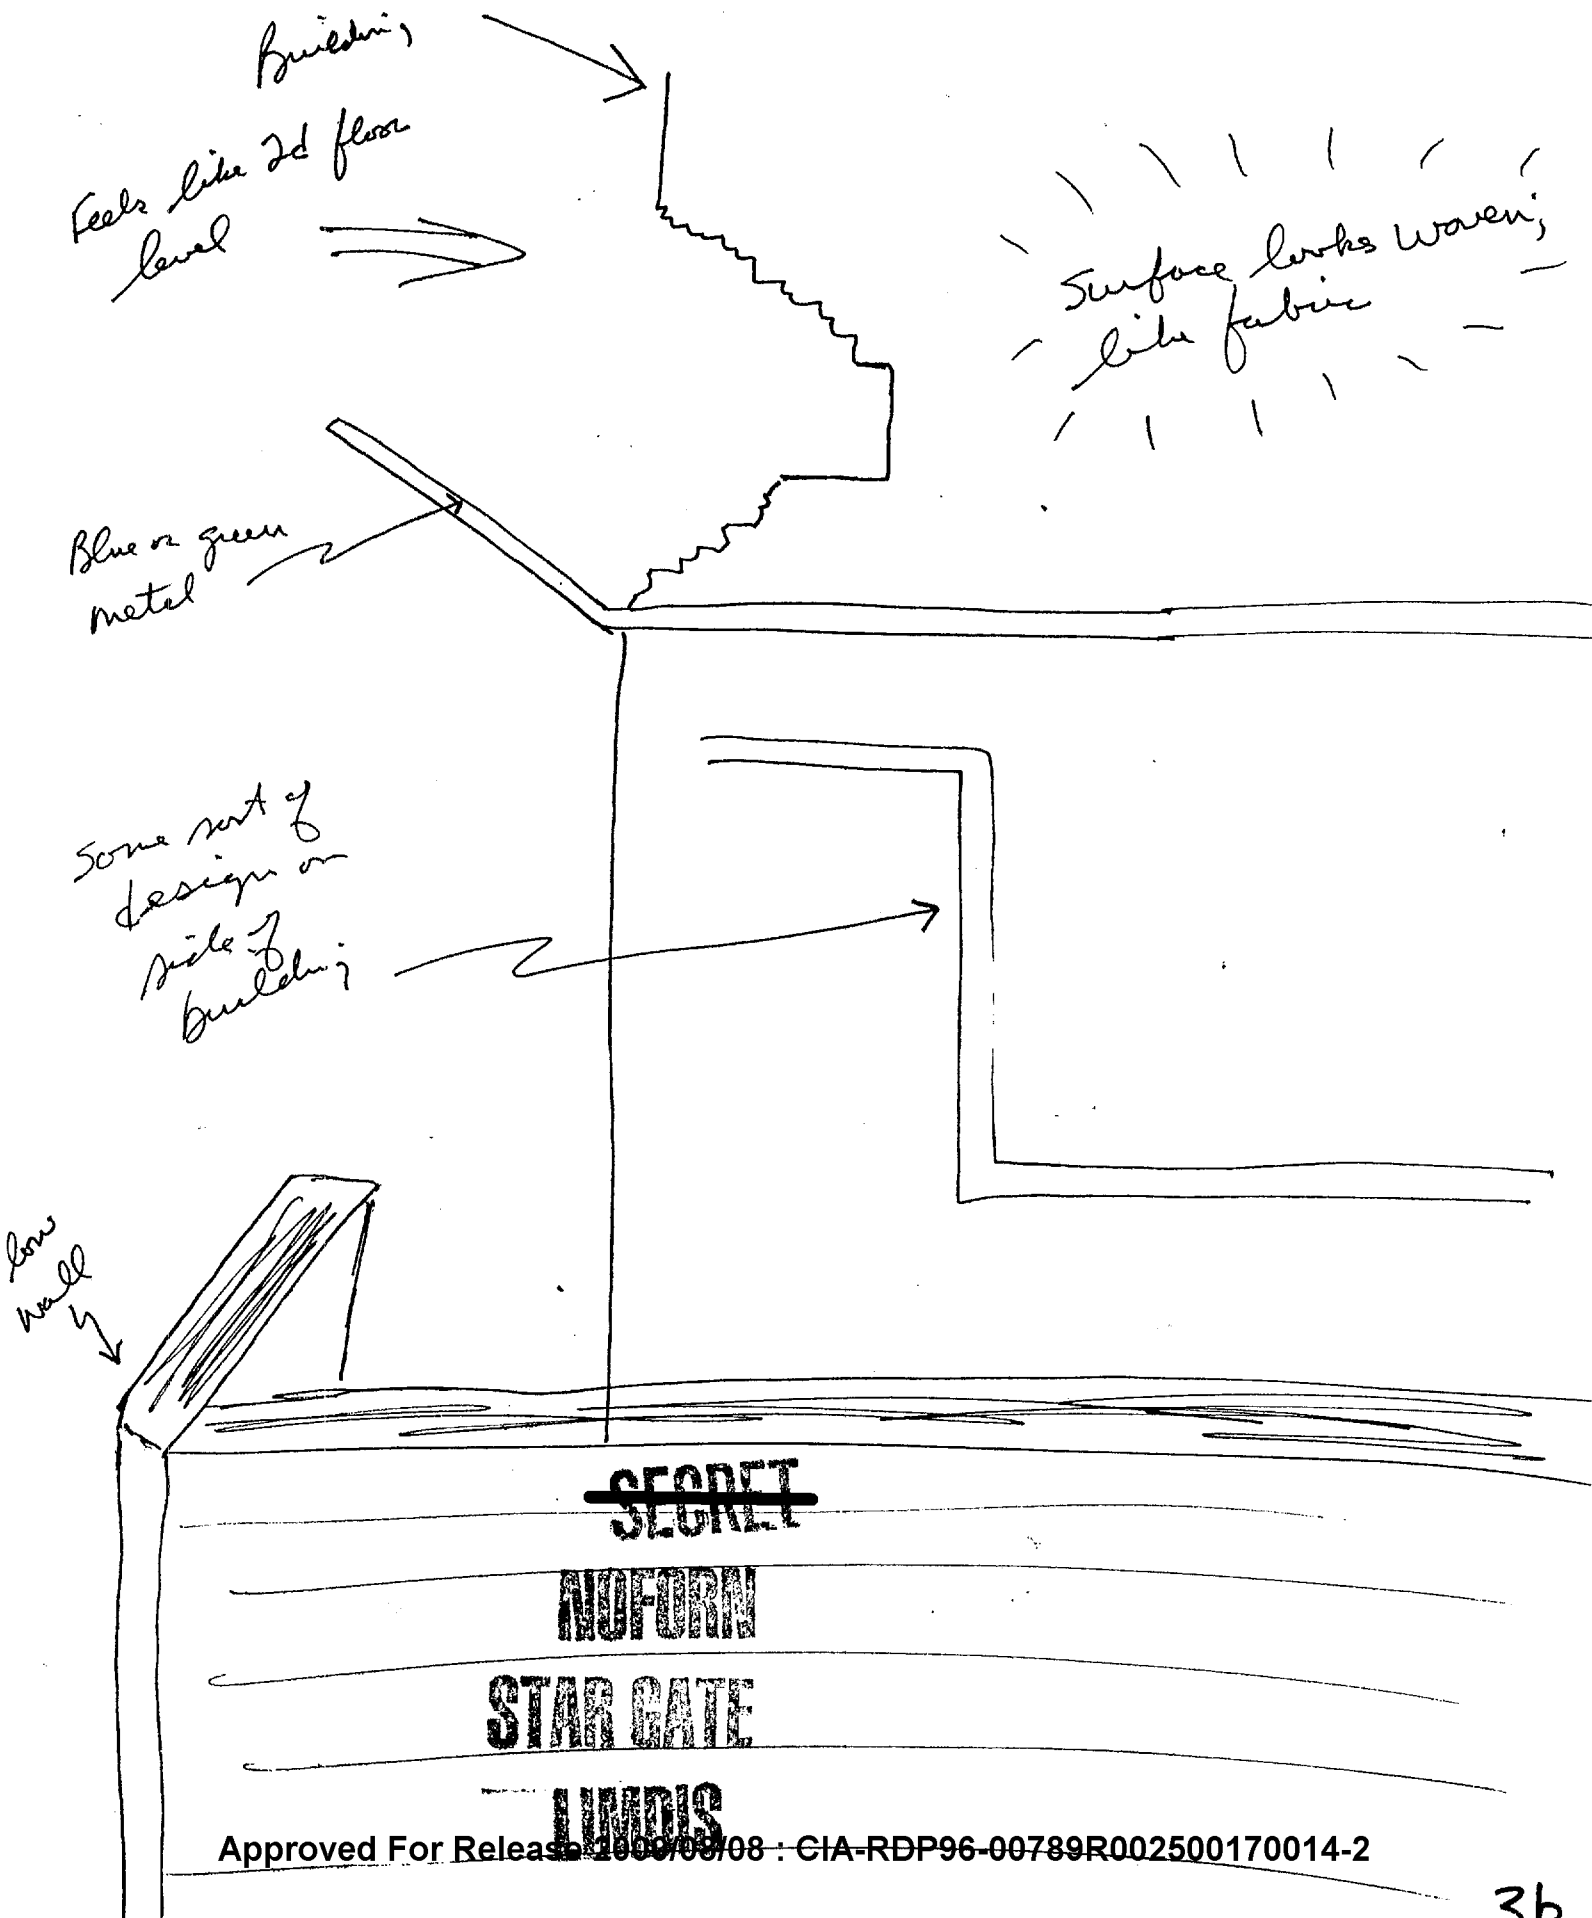 Building
Feels like 2d floor
level
Surface looks woven;
like fabric
Blue or green
metal
Some sort of
design on
side of
building
low
wall
SECRET
NOFORN
STAR GATE
LIMDIS
Approved For Release 2009/09/08 : CIA-RDP96-00789R002500170014-2